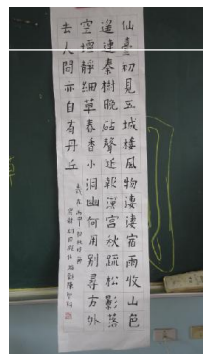 仙臺初見五城樓風物淒淒宿雨收山色
遙連秦樹晚砧聲近報漢宮秋疏松影落
空壇靜細草春香小洞幽何用別尋方外
去人間亦自有丹丘